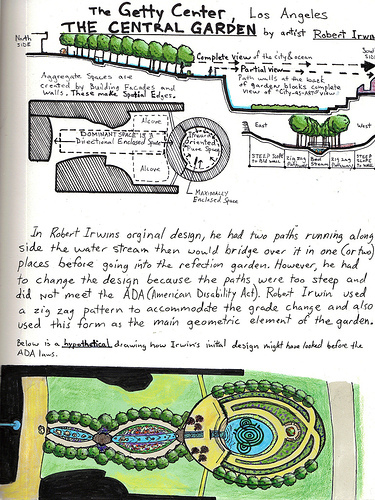 The Getty Center, Los Angeles
THE CENTRAL GARDEN by artist Robert Irwin
North
SIDE
Complete View of the city & ocean
Partial view
Path walls at the back
of garden blocks complete
view of "City-as-ART" view
Aggregate Spaces are
created by Building Facades and
walls. These make Spatial Edges.
Alcove
DOMINANT SPACE is a
Directional Enclosed Space
Alcove
Inward
Oriented
Pure Space
MAXIMALLY
Enclosed Space
East
West
STEEP SLOPE
to Old Wall
Zig Zag
Pathway
Bed
Stream
Zig Zag
Pathway
STEEP
SLOPE
to Wall
In Robert Irwins orginal design, he had two paths running along
side the water stream then would bridge over it in one (or two)
places before going into the refection garden. However, he had
to change the design because the paths were too steep and
did not meet the ADA (American Disability Act). Robert Irwin used
a zig zag pattern to accommodate the grade change and also
used this form as the main geometric element of the garden.
Below is a hypothetical drawing how Irwin's inital design might have looked before the
ADA laws.